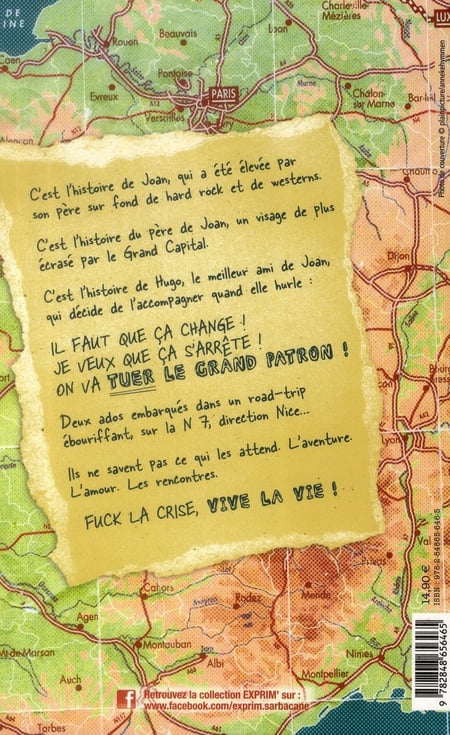 DE
INE
Caen
Rouen
Beauvais
Laon
Charle-
Mézières
LUX
Evreux
Pontoise
Versailles
PARIS
Marne
Châlon-
sur Marne
Bar-le
Alençon
N12
C'est l'histoire de Joan, qui a été élevée par
son père sur fond de hard rock et de westerns.
C'est l'histoire du père de Joan, un visage de plus
écrasé par le Grand Capital.
C'est l'histoire de Hugo, le meilleur ami de Joan,
qui décide de l'accompagner quand elle hurle :
IL FAUT QUE ÇA CHANGE !
JE VEUX QUE ÇA S'ARRÊTE !
ON VA TUER LE GRAND PATRON !
Deux ados embarqués dans un road-trip
ébouriffant, sur la N 7, direction Nice...
Ils ne savent pas ce qui les attend. L'aventure.
L'amour. Les rencontres.
FUCK LA CRISE, VIVE LA VIE !
Chau
Dijon
Saône
Bourg
Bresse
Lyon
Val
Privas
Ardèche
Cahors
Aveyron
Rodez
Mende
Agen
Montauban
Mt-de-Marsan
Albi
Nîmes
Montpellier
Auch
Tarbes
14,90 €
ISBN : 978-2-84865-646-5
9 782848 656465
Retrouvez la collection EXPRIM' sur :
www.facebook.com/exprim.sarbacane